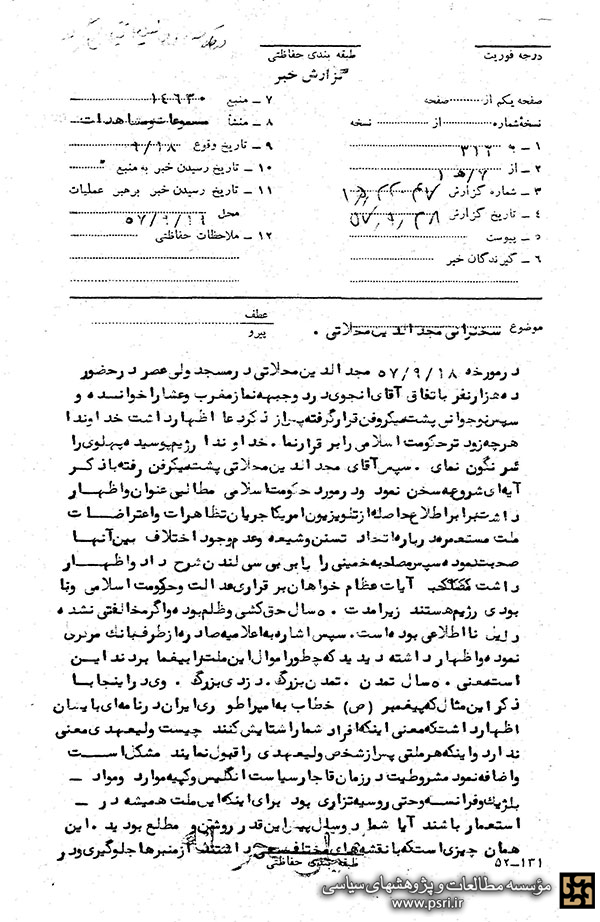 درجه فوریت
طبقه بندی حفاظتی
گزارش خبر
صفحه یکم از صفحه
نسخهٔ شماره از نسخه
۱ - به ۳۱۲
۲ - از ۷/ه ۱
۳ - شماره گزارش
۴ - تاریخ گزارش ۵۷/۹/۲۸
۵ - پیوست
۶ - گیرندگان خبر
۷ - منبع ۱٤٦۳۰
۸ - منشأ مسموعات ومشاهدات
۹ - تاریخ وقوع ۹/۱۸
۱۰ - تاریخ رسیدن خبر به منبع
۱۱ - تاریخ رسیدن خبر برهبر عملیات
محل ۵۷/۹/۱۹
۱۲ - ملاحظات حفاظتی
موضوع سخنرانی مجد الدین محلاتی .
عطف
پیرو
در مورخه ۵۷/۹/۱۸ مجد الدین محلاتی در مسجد ولی عصر در حضور
ده هزار نفر باتفاق آقای انجوی درد وجبهه نماز مغرب وعشا را خوانده و
سپس نوجوانی پشت میکروفن قرار گرفته پس از ذکر دعا اظهار داشت خداوندا
هرچه زود تر حکومت اسلامی را بر قرار نما . خداوندا رژیم پوسیده پهلوی را
سرنگون نمای . سپس آقای مجد الدین محلاتی پشت میکرفن رفته با ذکر
آیه ای شروع به سخن نمود ودر مورد حکومت اسلامی مطالبی عنوان واظهار
داشت برابر اطلاع حاصله از تلویزیون امریکا جریان تظاهرات واعتراضات
ملت مستعمره درباره اتحاد تسنن وشیعه وعدم وجود اختلاف بین آنها
صحبت نموده سپس مصاحبه خمینی را با بی بی سی لندن شرح داد واظهار
داشت آیات عظام خواهان بر قراری عدالت وحکومت اسلامی ونا
بودی رژیم هستند زیرا مدت ۵۰ سال حق کشی وظلم بوده واگر مخالفتی نشده
روی نا اطلاعی بوده است . سپس اشاره به اعلامیه صادره از طرف بانک مرکزی
نموده واظهار داشته دیدید که چطور اموال این ملت را بیغما بردند این
است معنی ۵۰ سال تمدن . تمدن بزرگ . دزدی بزرگ . وی در اینجا با
ذکر این مثال که پیغمبر (ص) خطاب به امپراطوری ایران در نامه ای بایشان
اظهار داشت که معنی اینکه افراد شما را ستایش کنند چیست ولیعهدی معنی
ندارد واینکه هر ملتی پس از شخص ولیعهدی را قبول نمایند مشکل است
واضافه نمود مشروطیت در زمان قاجار سیاست انگلیس وکپیه موارد ومواد -
بلژیک وفرانسه وحتی روسیه تزاری بود برای اینکه این ملت همیشه در -
استعمار باشند آیا شما در وسال پیش این قدر روشن و مطلع بودید . این
همان چیزی است که با نقشه های مختلف سعی داشتند از منبرها جلوگیری ودر
طبقه بندی حفاظتی
۵۲-۱۳۱
مؤسسه مطالعات و پژوهشهای سیاسی
www.psri.ir